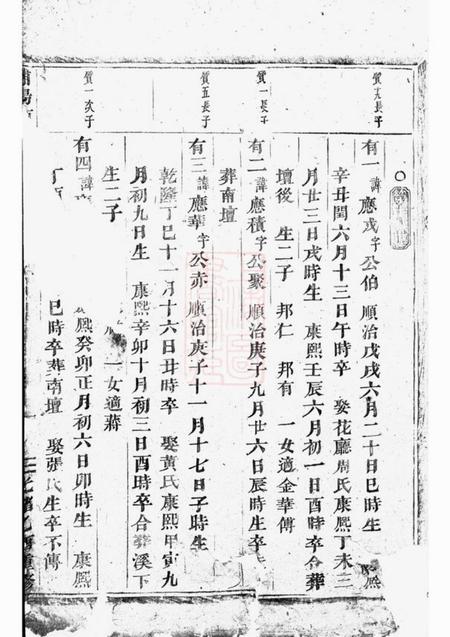 質九長子
有一 諱應戍字公伯 順治戊戌六月二十日巳時生 康熙
辛丑閏六月十三日午時卒 娶花廳周氏康熙丁未三
月廿三日戌時生 康熙壬辰六月初一日酉時卒合葬
壇後 生二子 邦仁 邦有 一女適金華傅
質一長子
有二 諱應積字公聚 順治庚子九月廿六日辰時生卒
葬南壇
質五長子
有三 諱應華字公赤 順治庚子十一月十七日子時生
乾隆丁巳十一月十六日丑時卒 娶黃氏康熙甲寅九
月初九日生 康熙辛卯十月初三日酉時卒合葬溪下
生二子 一女適蔣
質一次子
有四 諱 康熙癸卯正月初六日卯時生 康熙
巳時卒葬南壇 娶張氏生卒不傳
光緒 重修